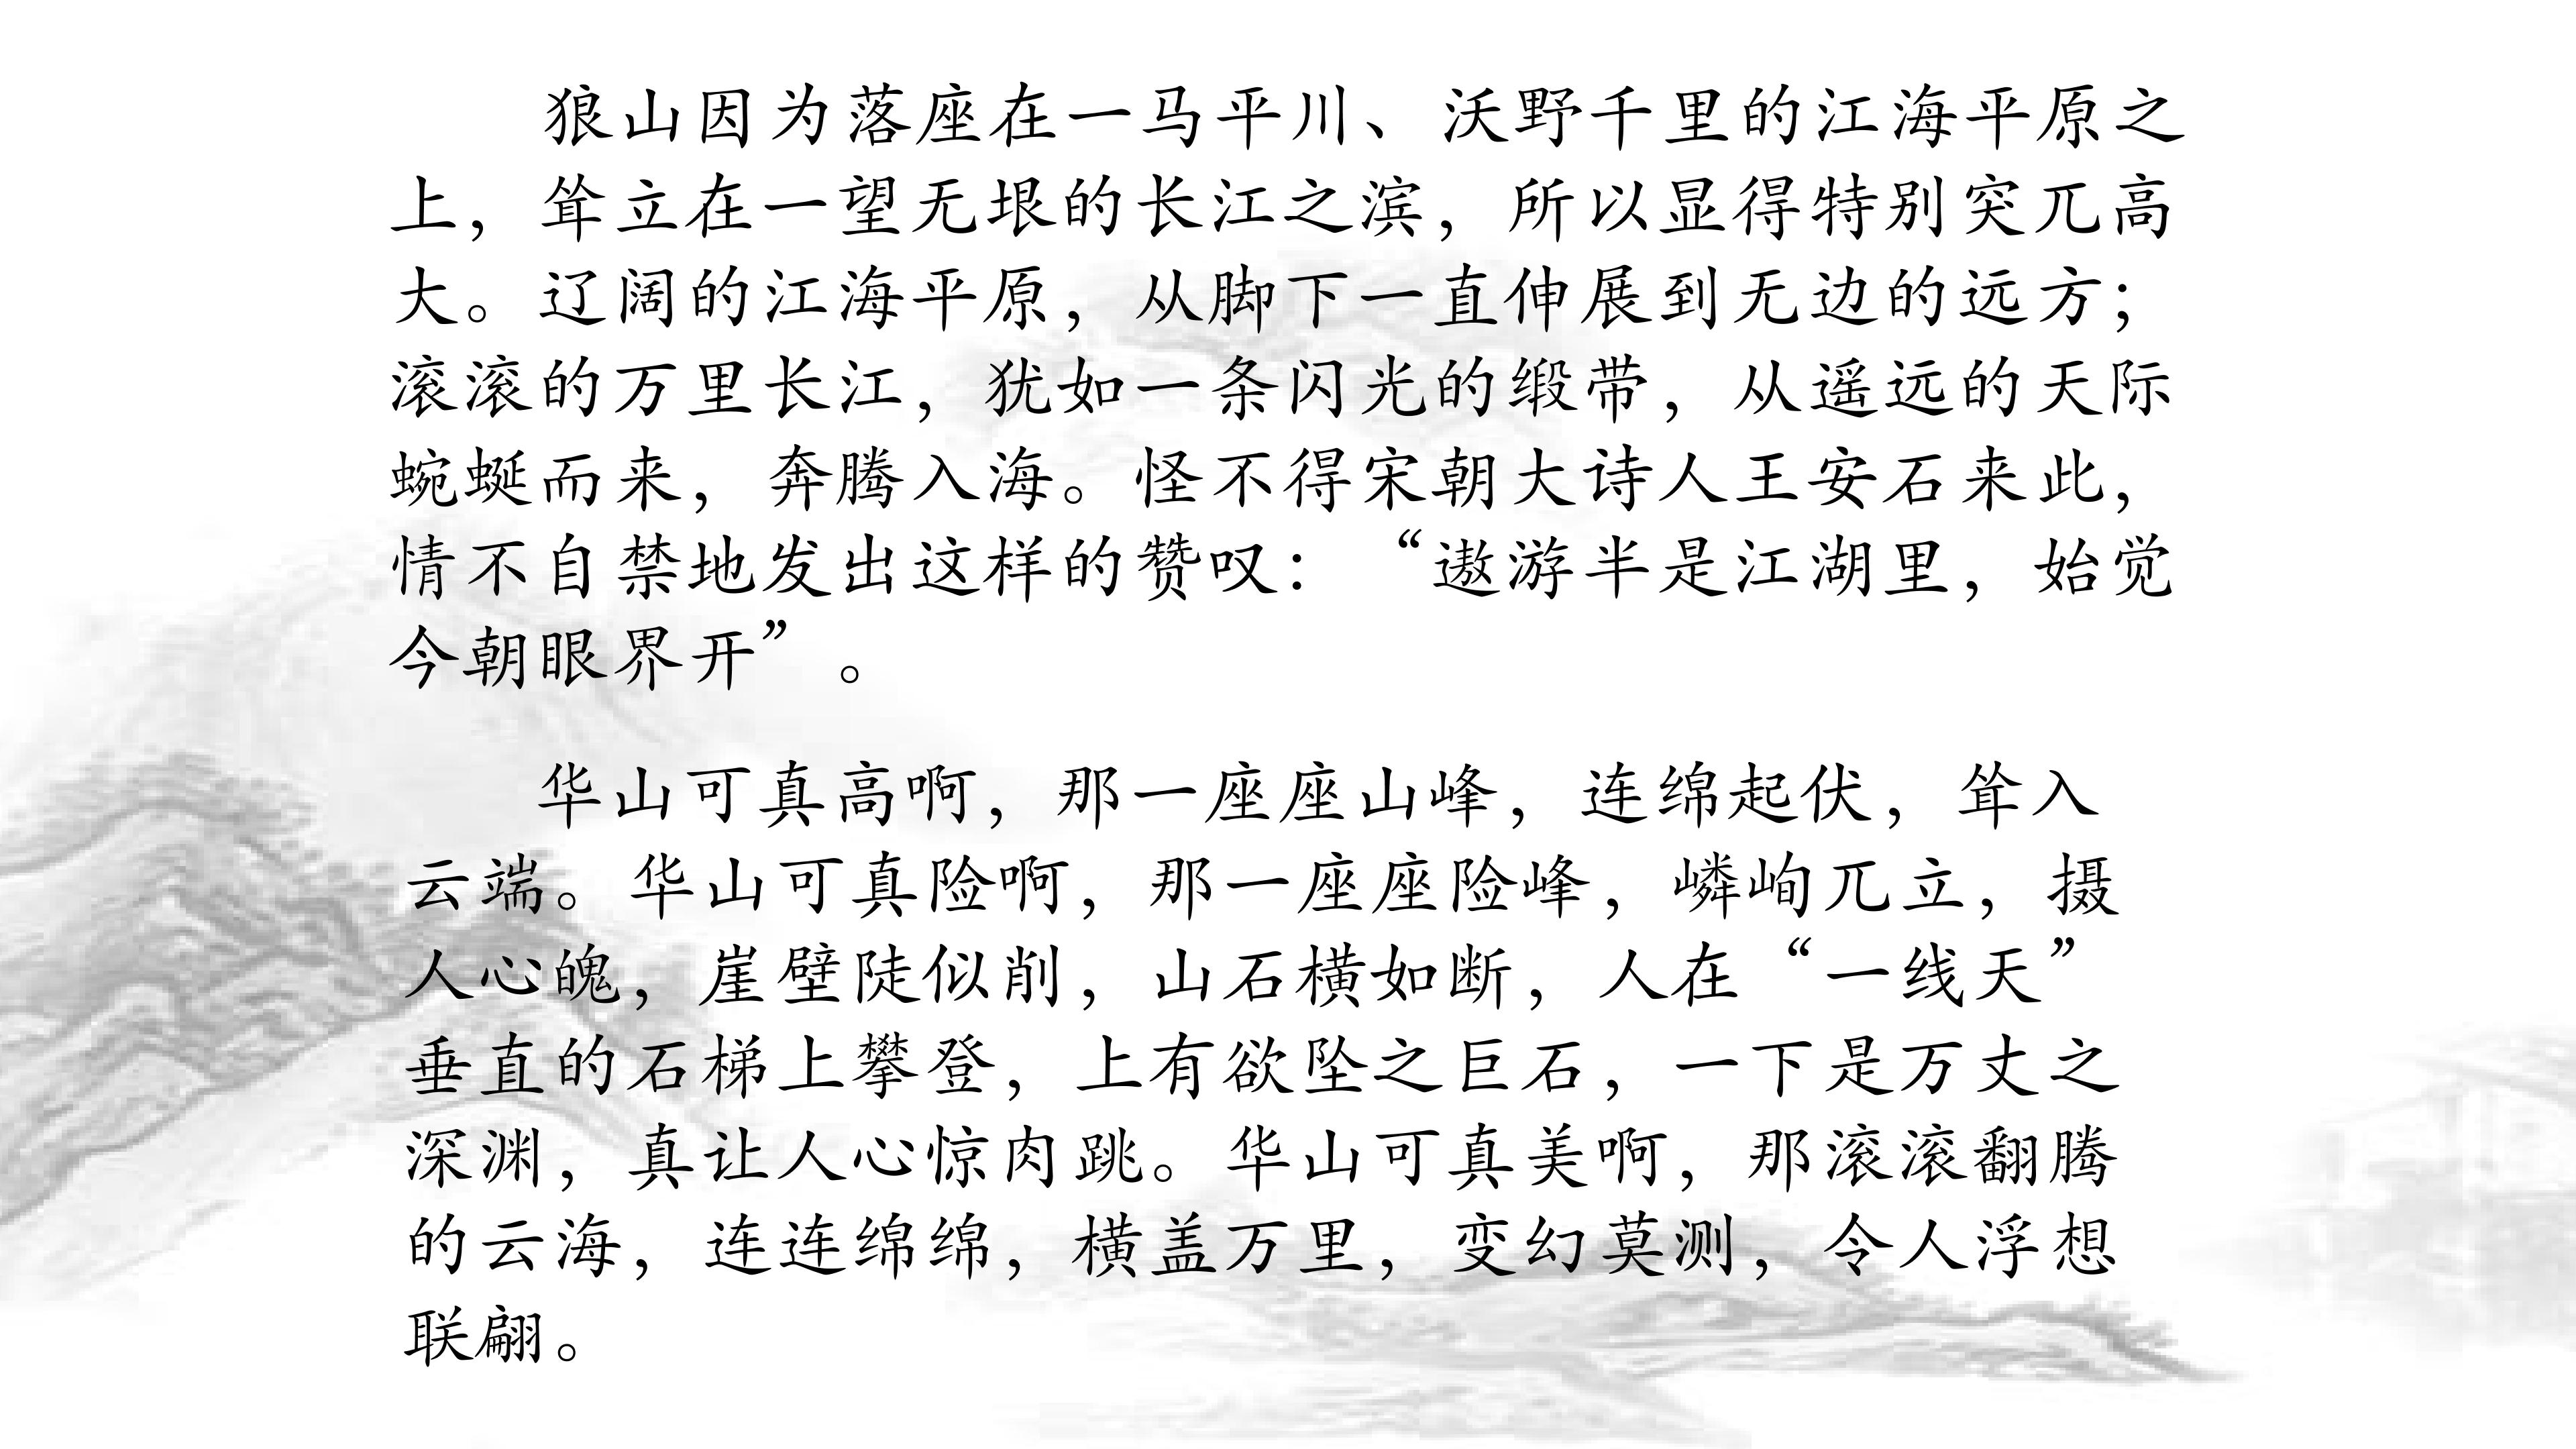 狼山因为落座在一马平川、沃野千里的江海平原之
上，耸立在一望无垠的长江之滨，所以显得特别突兀高
大。辽阔的江海平原，从脚下一直伸展到无边的远方；
滚滚的万里长江，犹如一条闪光的缎带，从遥远的天际
蜿蜒而来，奔腾入海。怪不得宋朝大诗人王安石来此，
情不自禁地发出这样的赞叹：“遨游半是江湖里，始觉
今朝眼界开”。
华山可真高啊，那一座座山峰，连绵起伏，耸入
云端。华山可真险啊，那一座座险峰，嶙峋兀立，摄
人心魄，崖壁陡似削，山石横如断，人在“一线天”
垂直的石梯上攀登，上有欲坠之巨石，一下是万丈之
深渊，真让人心惊肉跳。华山可真美啊，那滚滚翻腾
的云海，连连绵绵，横盖万里，变幻莫测，令人浮想
联翩。